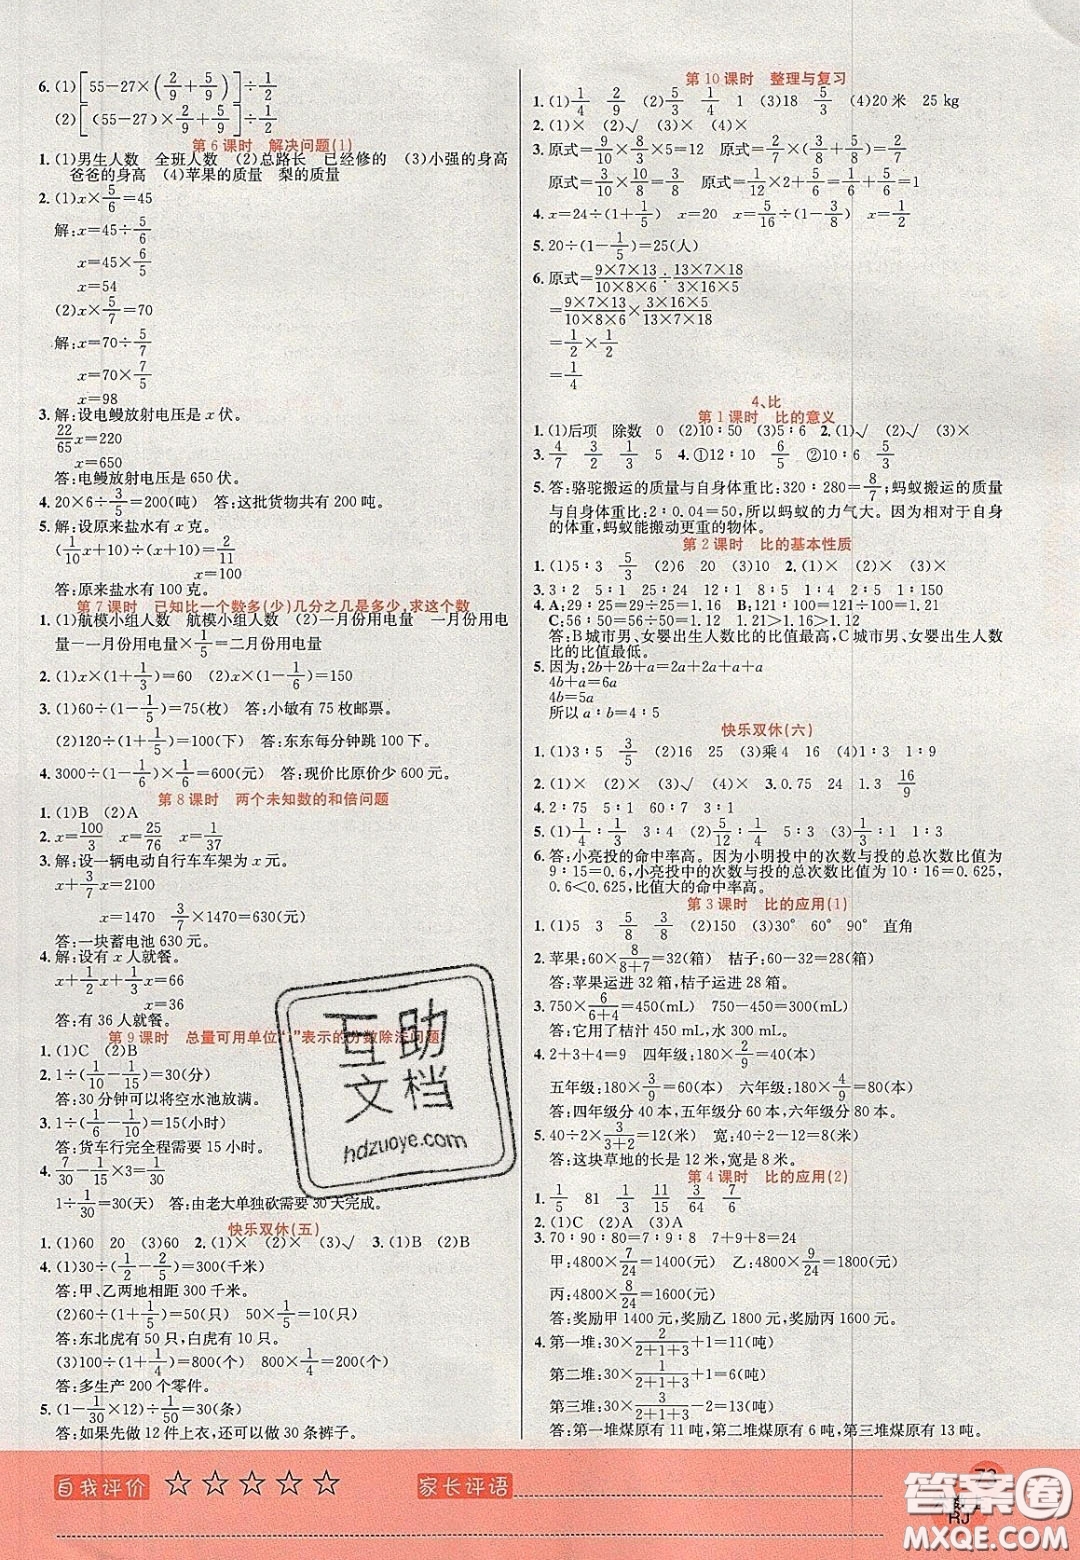 6. (1)[55−27×(2/9+5/9)]÷1/2
(2)[(55−27)×2/9+5/9]÷1/2
第6课时 解决问题(1)
1. (1)男生人数 全班人数 (2)总路长 已经修的 (3)小强的身高
爸爸的身高 (4)苹果的质量 梨的质量
2. (1)x×5/6=45
解:x=45÷5/6
x=45×6/5
x=54
(2)x×5/7=70
解:x=70÷5/7
x=70×7/5
x=98
3. 解:设电鳗放射电压是x伏。
22/65x=220
x=650
答:电鳗放射电压是650伏。
4. 20×6÷3/5=200(吨) 答:这批货物共有200吨。
5. 解:设原来盐水有x克。
(1/10x+10)÷(x+10)=2/11
x=100
答:原来盐水有100克。
第7课时 已知比一个数多(少)几分之几是多少,求这个数
1. (1)航模小组人数 航模小组人数 (2)一月份用电量 一月份用电
量−一月份用电量×1/5=二月份用电量
2. (1)x×(1+1/3)=60 (2)x×(1−1/6)=150
3. (1)60÷(1−1/5)=75(枚) 答:小敏有75枚邮票。
(2)120÷(1+1/5)=100(下) 答:东东每分钟跳100下。
4. 3000÷(1−1/6)×1/6=600(元) 答:现价比原价少600元。
第8课时 两个未知数的和倍问题
1. (1)B (2)A
2. x=100/3 x=25/76 x=1/37
3. 解:设一辆电动自行车车架为x元。
x+3/7x=2100
x=1470 3/7×1470=630(元)
答:一块蓄电池630元。
4. 解:设有x人就餐。
x+1/2x+1/3x=66
x=36
答:有36人就餐。
第9课时 总量可用单位“1”表示的分数除法问题
1. (1)C (2)B
2. 1÷(1/10−1/15)=30(分)
答:30分钟可以将空水池放满。
3. 1÷(1/6−1/10)=15(小时)
答:货车行完全程需要15小时。
4. 7/30−1/15×3=1/30
1÷1/30=30(天) 答:由老大单独砍需要30天完成。
快乐双休(五)
1. (1)60 20 (3)60 2. (1)× (2)× (3)√ 3. (1)B (2)B
4. (1)30÷(1/2−2/5)=300(千米)
答:甲、乙两地相距300千米。
(2)60÷(1+1/5)=50(只) 50×1/5=10(只)
答:东北虎有50只,白虎有10只。
(3)100÷(1+1/4)=800(个) 800×1/4=200(个)
答:多生产200个零件。
5. (1−1/30×12)÷1/50=30(条)
答:如果先做12件上衣,还可以做30条裤子。
第10课时 整理与复习
1. (1)1/4 2/9 (2)5/3 1/4 1 (3)18 5/3 (4)20米 25 kg
2. (1)× (2)√ (3)× (4)×
3. 原式=9/10×8/3×5=12 原式=2/7×(3/8+5/8)=2/7
原式=3/10×10/3=8/3 原式=1/12×2+5/6=1/6+5/6=1
4. x=24÷(1+1/5) x=20 x=5/16÷(1−3/8) x=1/2
5. 20÷(1−1/5)=25(人)
6. 原式=9×7×13/10×8×6÷13×7×18/3×16×5
=9×7×13/10×8×6×3×16×5/13×7×18
=1/2×1/2
=1/4
4、比
第1课时 比的意义
1. (1)后项 除数 0 (2)10∶50 (3)5∶6 2. (1)√ (2)√ (3)×
3. 4/7 3/2 1/3 5 4. ①12∶10 6/5 ②10∶6 5/3
5. 答:骆驼搬运的质量与自身体重比:320∶280=8/7;蚂蚁搬运的质量
与自身体重比:2∶0.04=50,所以蚂蚁的力气大。因为相对于自身
的体重,蚂蚁能搬动更重的物体。
第2课时 比的基本性质
1. (1)5∶3 5/3 (2)6 20 (3)10 2. (1)× (2)√ (3)×
3. 3∶2 5∶1 27∶1 24∶1 8∶1 4∶5
4. A:29∶25=29÷25=1.16 B:121∶100=121÷100=1.21
C:56∶50=56÷50=1.12 1.21>1.16>1.12
答:B城市男、女婴出生人数比的比值最高,C城市男、女婴出生人数
比的比值最低。
5. 因为:2b+2b+a=2a+2a+2a
4b+a=6a
4b=5a
所以a∶b=4∶5
快乐双休(六)
1. (1)3∶5 3/5 (2)16 25 (3)乘4 16 (4)1∶1 1∶9
2. (1)√ (2)√ (3)× (4)× 3. 0.75 24 1.3 16/9
4. 2∶75 5∶1 60∶7 3∶1
5. (1)1/4∶1/3 3∶4 (2)5/12∶1/4 5∶3
6. 答:小亮投的命中率高。因为小明投中的次数与投的总次数比值为
9∶15=0.6,小亮投中的次数与投的总次数比值为10∶16=0.625,
0.6<0.625,比值大的命中率高。
第3课时 比的应用(1)
1. (1)5 3 5/8 3/8 (2)150 (3)30° 60° 90° 直角
2. 苹果:60×8/8+7=32(箱) 桔子:60−32=28(箱)
答:苹果运进32箱,桔子运进28箱。
3. 750×6/6+4=450(mL) 750−450=300(mL)
答:它用了桔汁450mL,水300mL。
4. 2+3+4=9 四年级:180×2/9=40(本)
五年级:180×3/9=60(本) 六年级:180×4/9=80(本)
答:四年级分40本,五年级分60本,六年级分80本。
5. 40÷2×3/5=12(米) 宽:40÷2−12=8(米)
答:这块草地的长是12米,宽是8米。
第4课时 比的应用(2)
1. 1/5 81 4/15 11/15 3/64 7/6
2. (1)C (2)A (3)A
3. 70∶90∶80=7∶9∶8 7+9+8=24
甲:4800×7/24=1400(元) 乙:4800×9/24=1800(元)
丙:4800×8/24=1600(元)
答:奖励甲1400元,奖励乙1800元,奖励丙1600元。
4. 第一堆:30×2/2+1+3+1=11(吨)
第二堆:30×1/2+1+3+1=6(吨)
第三堆:30×3/2+1+3−2=13(吨)
答:第一堆煤原有11吨,第二堆煤原有6吨,第三堆煤原有13吨。
互助
文档
hdzuoye.com
自我评价 ☆☆☆☆☆ 家长评语
73
RJ
答案圈
MXQE.COM